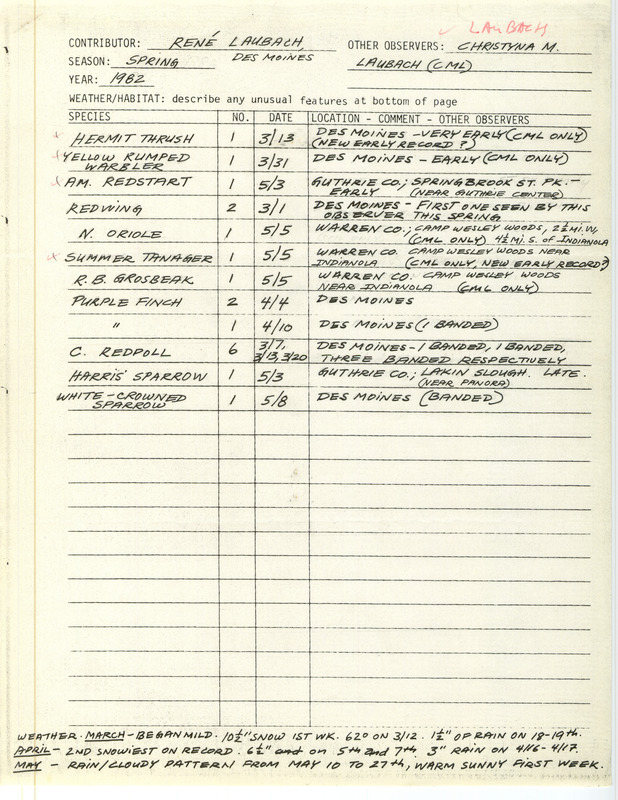 ✓ LAUBACH
CONTRIBUTOR: RENÉ LAUBACH, OTHER OBSERVERS: CHRISTYNA M.
SEASON: SPRING DES MOINES LAUBACH (CML)
YEAR: 1982
WEATHER/HABITAT: describe any unusual features at bottom of page
SPECIES NO. DATE LOCATION - COMMENT - OTHER OBSERVERS
HERMIT THRUSH 1 3/13 DES MOINES - VERY EARLY (CML ONLY)
(NEW EARLY RECORD?)
YELLOW RUMPED
WARBLER 1 3/31 DES MOINES - EARLY (CML ONLY)
AM. REDSTART 1 5/3 GUTHRIE CO.; SPRINGBROOK ST. PK. -
EARLY (NEAR GUTHRIE CENTER)
REDWING 2 3/1 DES MOINES - FIRST ONE SEEN BY THIS
OBSERVER THIS SPRING
N. ORIOLE 1 5/5 WARREN CO.; CAMP WESLEY WOODS, 2½ MI. W,
(CML ONLY) 4½ MI. S. OF INDIANOLA
SUMMER TANAGER 1 5/5 WARREN CO. CAMP WESLEY WOODS NEAR
INDIANOLA (CML ONLY, NEW EARLY RECORD?)
R.B. GROSBEAK 1 5/5 WARREN CO. CAMP WESLEY WOODS
NEAR INDIANOLA (CML ONLY)
PURPLE FINCH 2 4/4 DES MOINES
" 1 4/10 DES MOINES (1 BANDED)
C. REDPOLL 6 3/7, 3/13, 3/20 DES MOINES - 1 BANDED, 1 BANDED,
THREE BANDED RESPECTIVELY
HARRIS' SPARROW 1 5/3 GUTHRIE CO.; LAKIN SLOUGH. LATE.
(NEAR PANORA)
WHITE-CROWNED
SPARROW 1 5/8 DES MOINES (BANDED)
WEATHER. MARCH - BEGAN MILD. 10½" SNOW 1ST WK. 62° ON 3/12. 1½" OF RAIN ON 18-19th.
APRIL - 2ND SNOWIEST ON RECORD. 6½" on 5th and 7th 3" RAIN ON 4/16-4/17.
MAY - RAIN/CLOUDY PATTERN FROM MAY 10 TO 27th, WARM SUNNY FIRST WEEK.